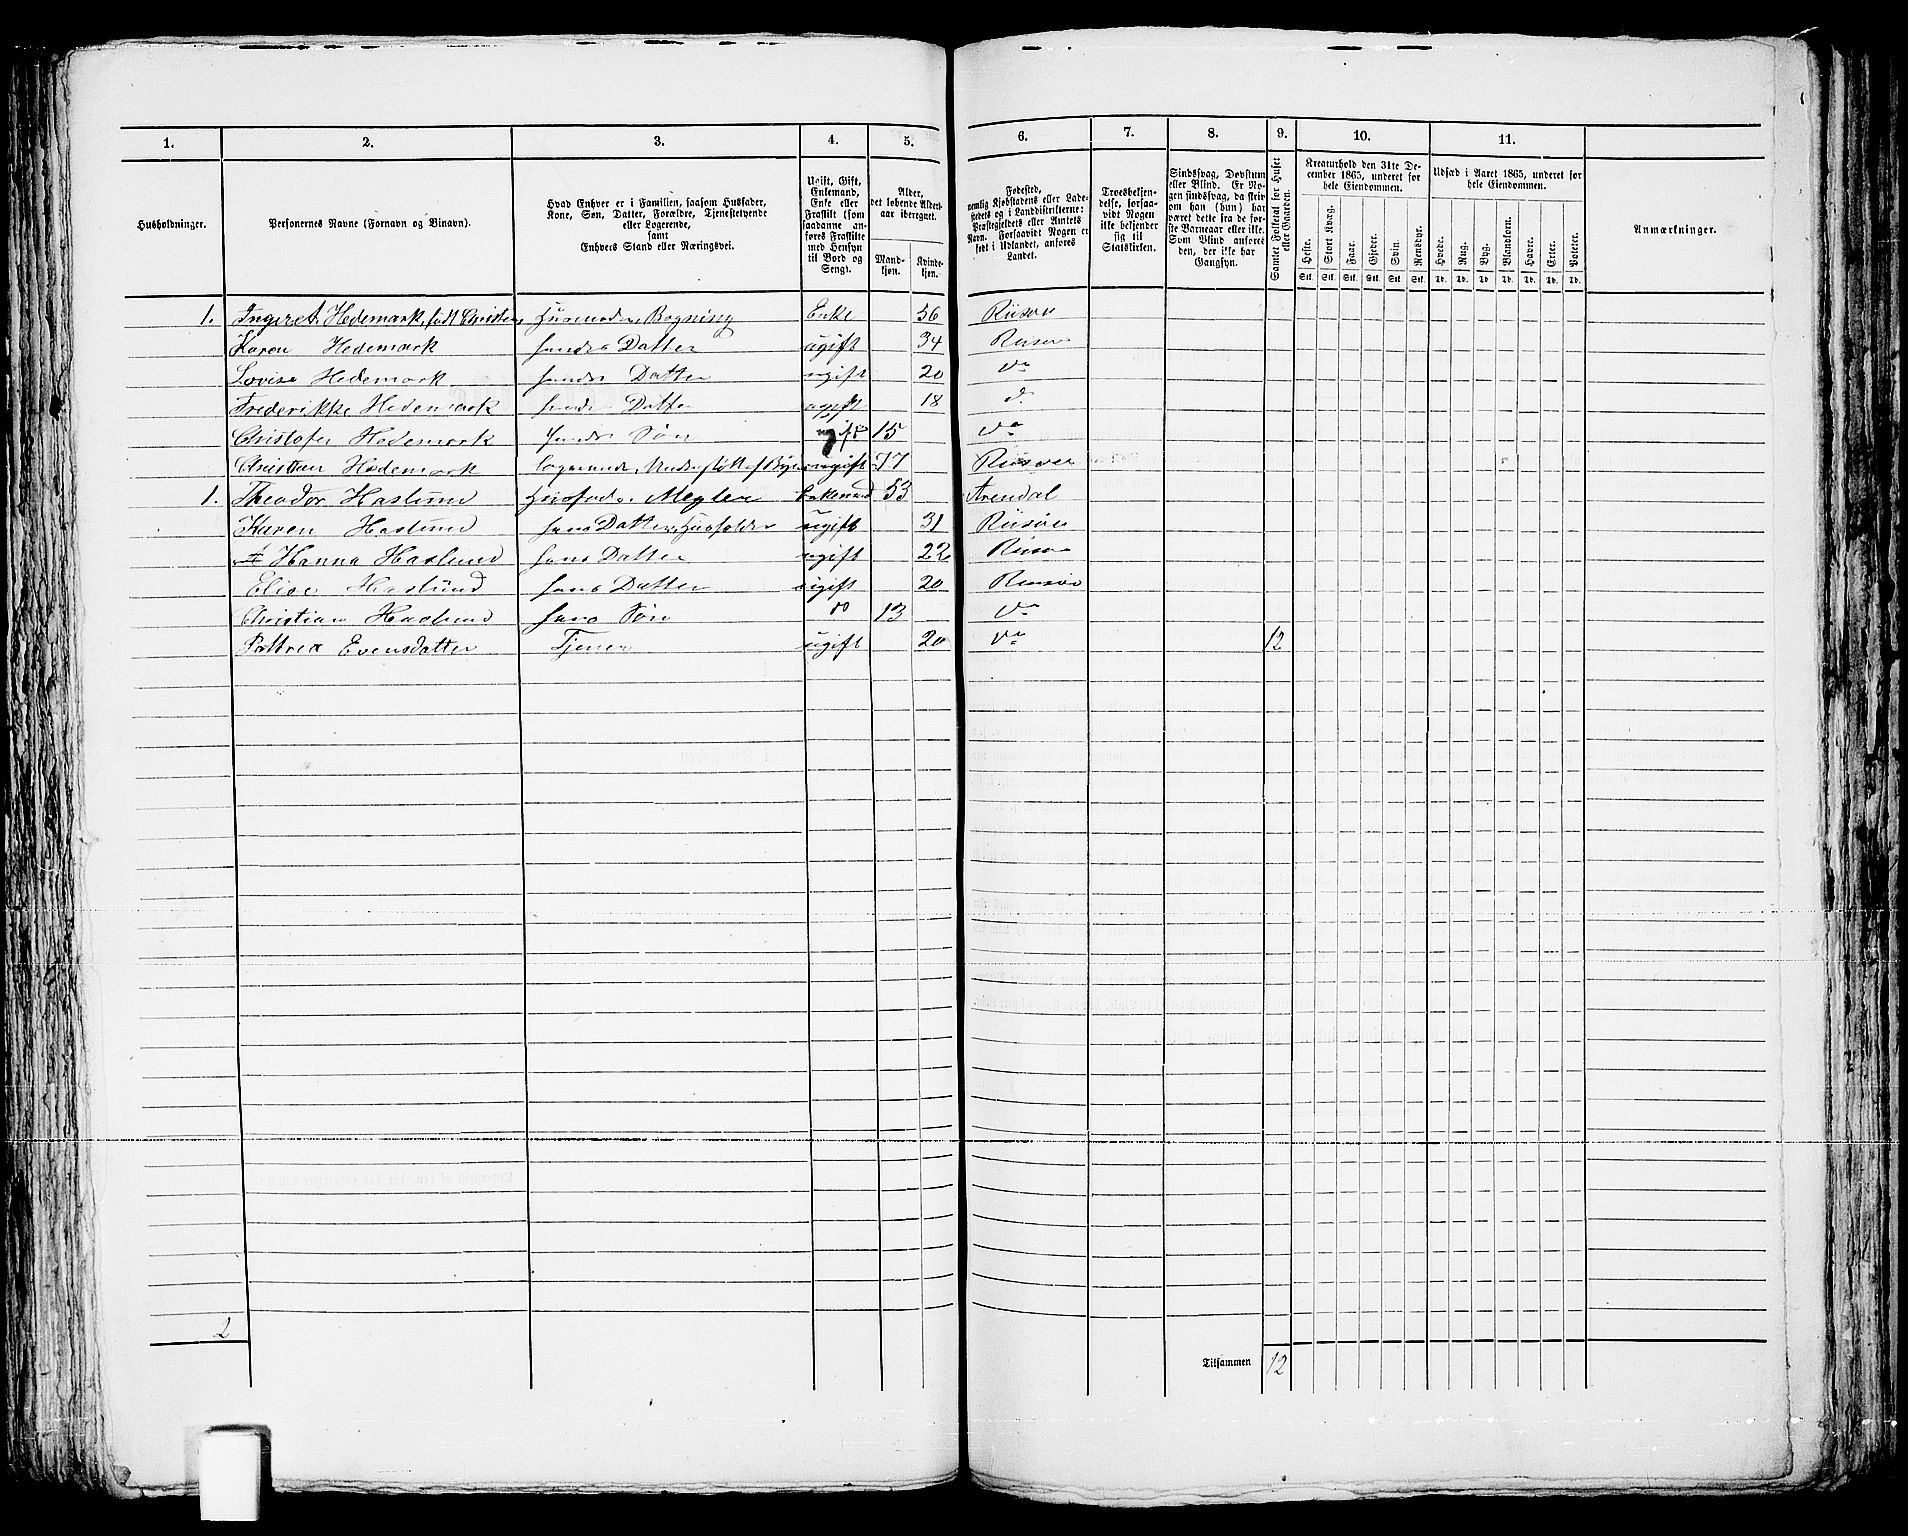 1. 2. 3. 4. 5. 6. 7. 8. 9. 10. 11.
Husholdninger.
Personernes Navne (Fornavn og Binavn).
Hvad Enhver er i Familien, saasom Husfader,
Kone, Søn, Datter, Forældre, Tjenestetyende
eller Logerende,
samt
Enhvers Stand eller Næringsvei.
Ugift, Gift,
Enkemand,
Enke eller
Fraskilt (som
saadanne an-
føres Fraskilte
med Hensyn
til Bord og
Seng).
Alder,
det løbende Alders-
aar iberegnet.
Mand-
kjøn.
Kvinde-
kjøn.
Fødested,
nemlig Kjøbstadens eller Lade-
stedets og i Landdistrikterne:
Præstegjeldets eller Amtets
Navn. Forsaavidt Nogen er
født i Udlandet, anføres
Landet.
Troesbekjen-
delse, forsaa-
vidt Nogen
ikke bekjender
sig til
Statskirken.
Sindssvag, Døvstum
eller Blind. Er No-
gen sindssvag, da skriv
om han (hun) har
været dette fra de før-
ste Barneaar eller ikke.
Som Blind anføres
den, der ikke har
Gangsyn.
Samlet Folketal for Huset
eller Gaarden.
Kreaturhold den 31te De-
cember 1865, underet for
hele Eiendommen.
Heste. Stort Kvæg. Faar. Gjeder. Svin. Rensdyr.
Stk. Stk. Stk. Stk. Stk. Stk.
Udsæd i Aaret 1865, underet for
hele Eiendommen.
Hvede. Rug. Byg. Blandkorn. Havre. Erter. Poteter.
Td. Td. Td. Td. Td. Td. Td.
Anmærkninger.
1. Ingeret Hedemark, født Christens Husmoder, Bagning Enke 56 Riisøer
Karen Hedemark hendes Datter ugift 34 Riisøer
Lovise Hedemark hendes Datter ugift 20 do
Frederikke Hedemark hendes Datter ugift 18 do
Christofer Hedemark hendes Søn ugift 15 do
Christian Hedemark logerende, Understøttet af Byen ugift 77 Riisøer
1. Theodor Haslund Husfader Megler Enkemand 53 Arendal
Karen Haslund hans Datter, Husholder ugift 31 Riisøer
Hanna Haslund hans Datter ugift 22 Riisøer
Elise Haslund hans Datter ugift 20 Riisøer
Christian Haslund hans Søn do 13 do
Evensdatter Tjener ugift 20 do 12
2
Tilsammen 12